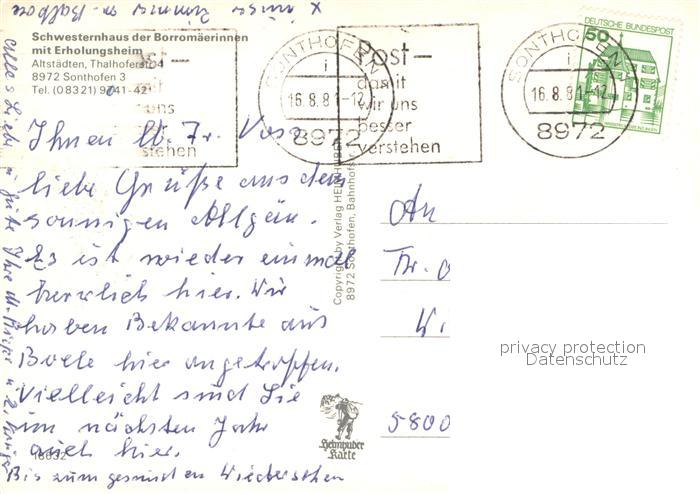 x unser Zimmer m. Balkon
Schwesternhaus der Borromäerinnen
mit Erholungsheim
Altstädten, Thalhoferstr.
8972 Sonthofen 3
Tel. (08321) 9041-42
SONTHOFEN
i
16.8.81-12
8972
Post—
damit
wir uns
besser
verstehen
SONTHOFEN
i
16.8.81-12
8972
DEUTSCHE BUNDESPOST
50
Ihnen lb. Fr.
liebe Grüße aus dem
sonnigen Allgäu.
Es ist wieder einmal
herrlich hier. Wir
haben Bekannte aus
Boele hier angetroffen.
Vielleicht sind Sie
im nächsten Jahr
auch hier.
Bis zum gesunden Wiedersehen
Alles Liebe u. Gute Ihre
Copyright by Verlag
8972 Sonthofen, Bahnhofs
An
Fr.
5800
Heimhuder
Karte
privacy protection
Datenschutz